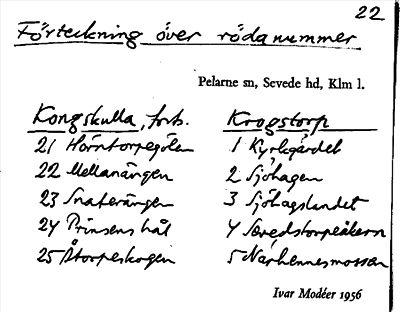 22
Förteckning över röda nummer
Pelarne sn, Sevede hd, Klm l.
Kongskulla, forts.
21 Horntorpegölen
22 Mellanängen
23 Snaterängen
24 Prinsens hål
25 Åtorpeskogen
Krogstorp
1 Kyrkegärdet
2 Sjöhagen
3 Sjöhagslandet
4 Svedstorpeåkern
5 Närhennesmossen
Ivar Modéer 1956